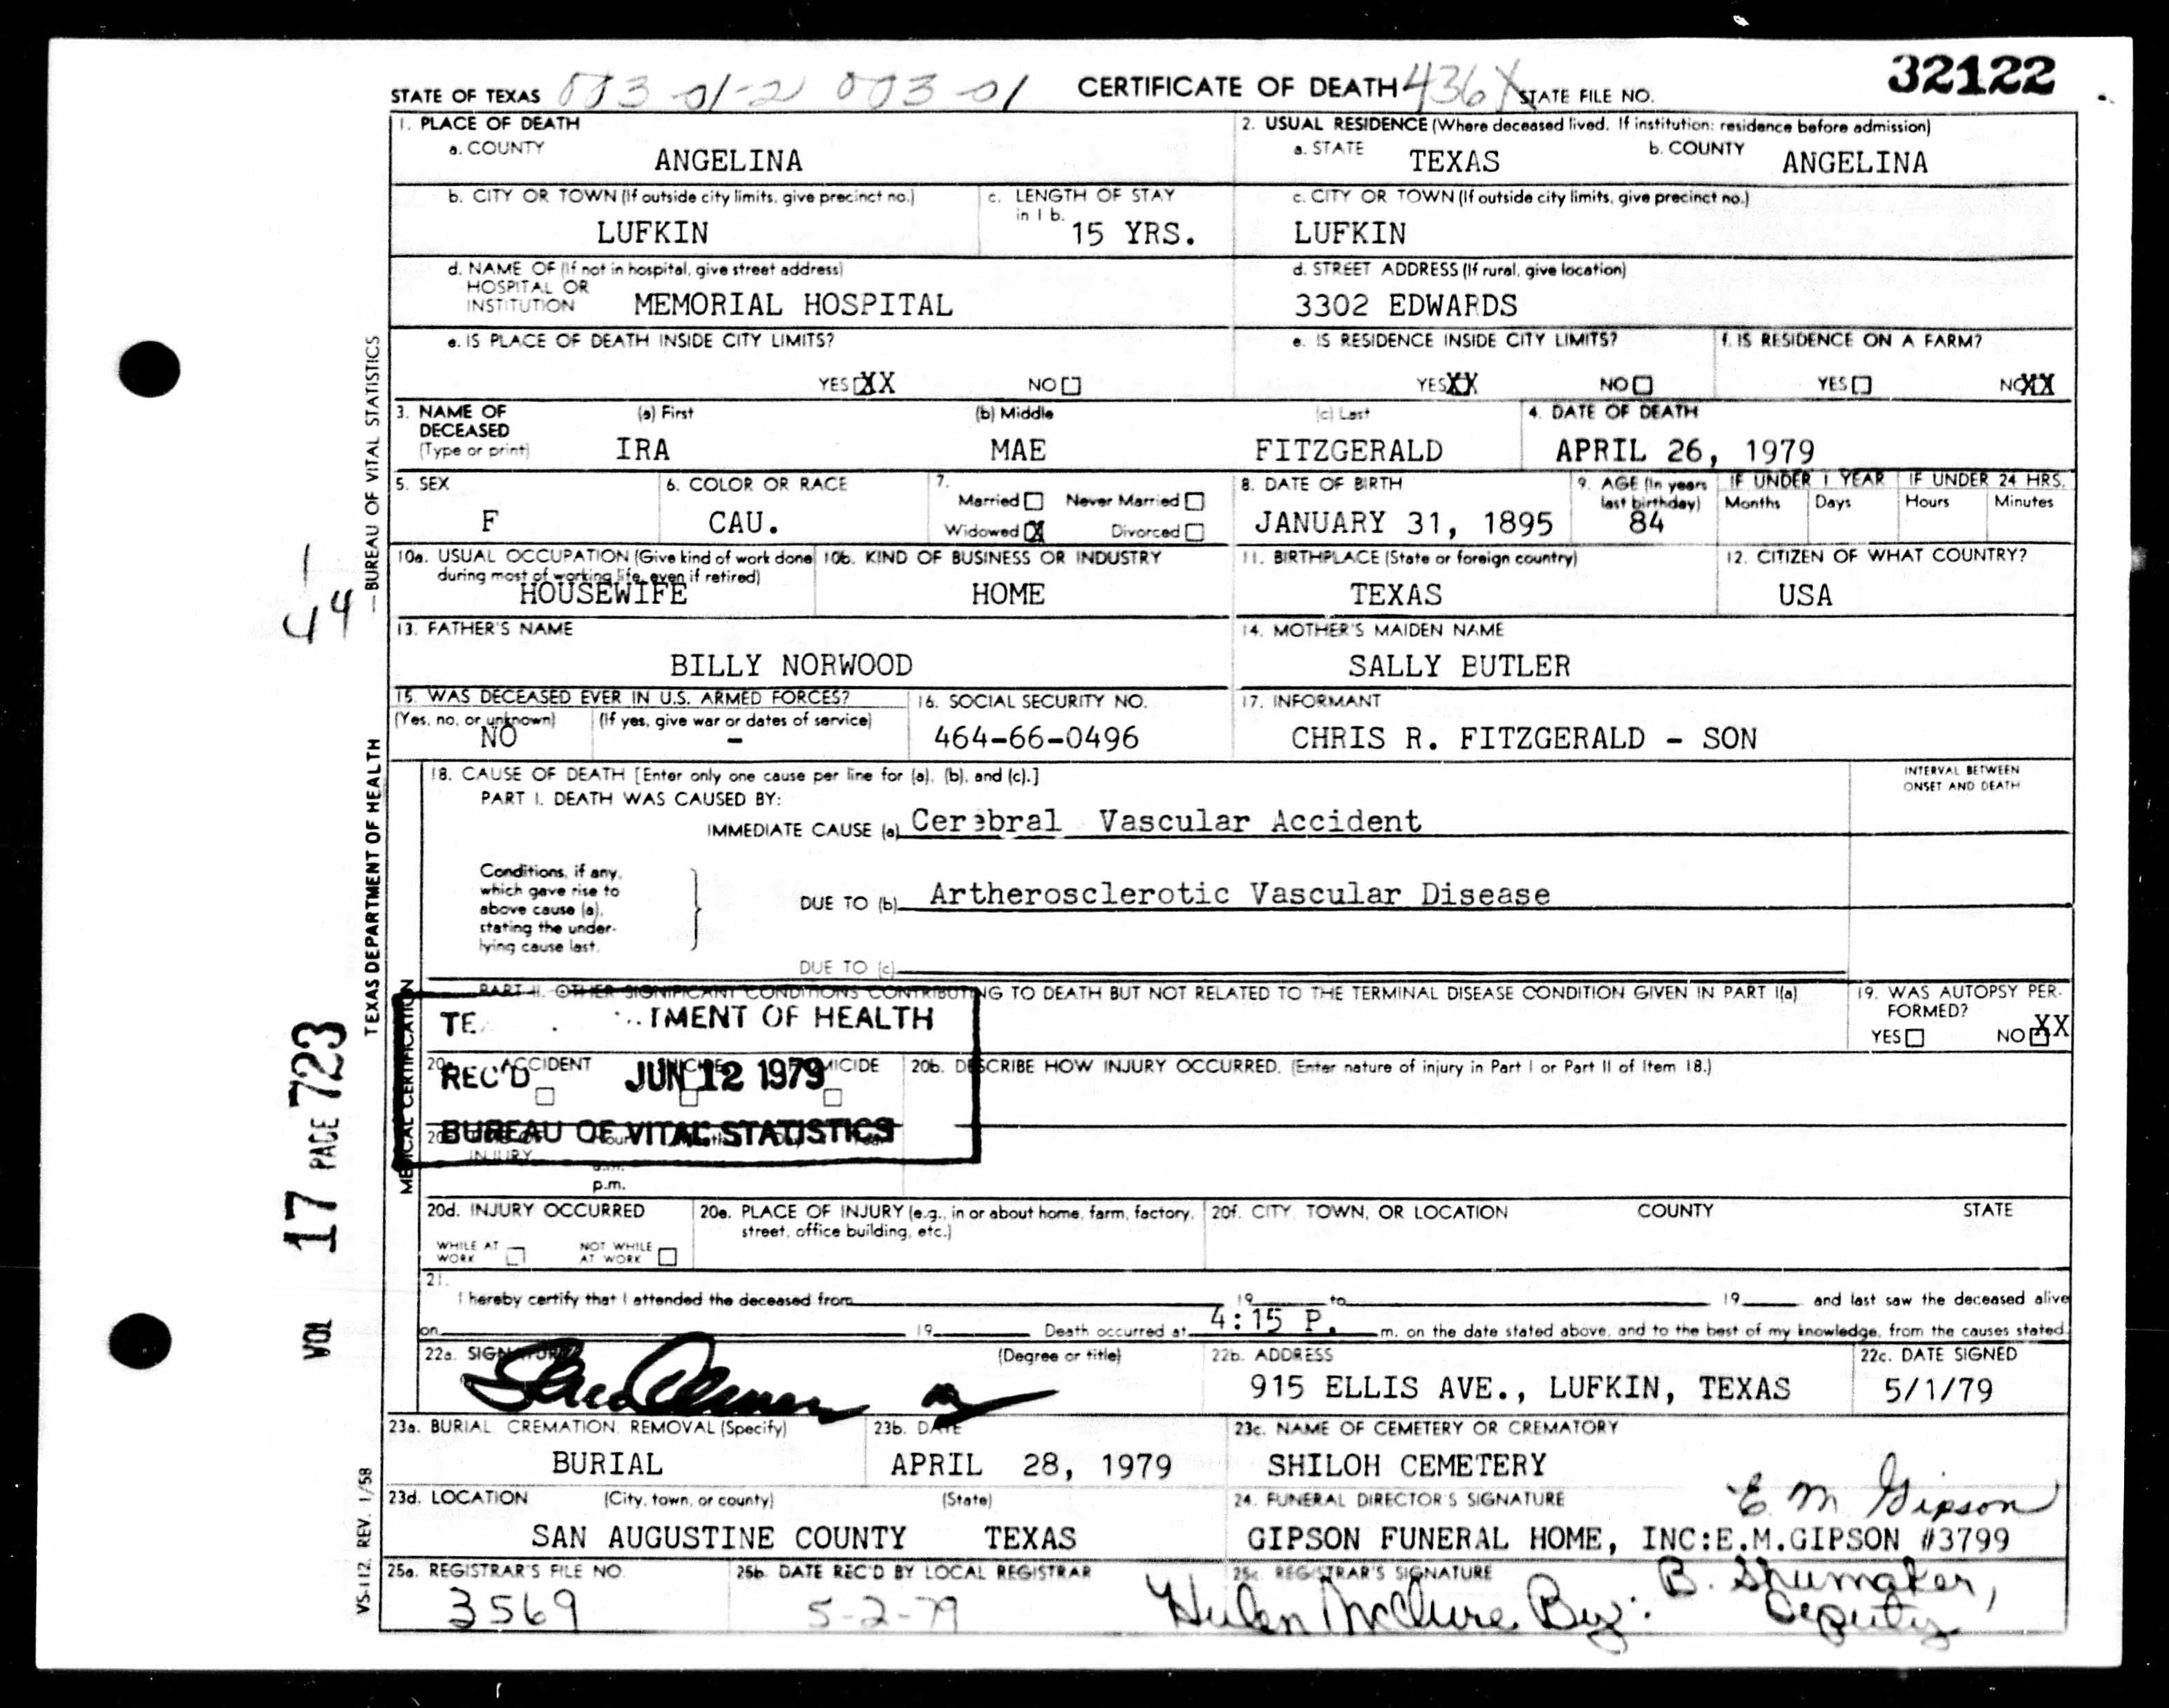 STATE OF TEXAS 003-01-2 003-01 CERTIFICATE OF DEATH 436X STATE FILE NO. 32122
1. PLACE OF DEATH
a. COUNTY ANGELINA
2. USUAL RESIDENCE (Where deceased lived. If institution: residence before admission)
a. STATE TEXAS b. COUNTY ANGELINA
b. CITY OR TOWN (If outside city limits, give precinct no.) LUFKIN
c. LENGTH OF STAY in 1 b. 15 YRS.
c. CITY OR TOWN (If outside city limits, give precinct no.)
LUFKIN
d. NAME OF (If not in hospital, give street address)
HOSPITAL OR
INSTITUTION MEMORIAL HOSPITAL
d. STREET ADDRESS (If rural, give location)
3302 EDWARDS
e. IS PLACE OF DEATH INSIDE CITY LIMITS?
YES XX NO
e. IS RESIDENCE INSIDE CITY LIMITS?
YES XX NO
f. IS RESIDENCE ON A FARM?
YES NO XX
3. NAME OF DECEASED (Type or print)
(a) First (b) Middle (c) Last
IRA MAE FITZGERALD
4. DATE OF DEATH
APRIL 26, 1979
5. SEX
F
6. COLOR OR RACE
CAU.
7.
Married Never Married
Widowed X Divorced
8. DATE OF BIRTH
JANUARY 31, 1895
9. AGE (In years last birthday)
84
IF UNDER 1 YEAR
Months Days
IF UNDER 24 HRS.
Hours Minutes
10a. USUAL OCCUPATION (Give kind of work done
during most of working life, even if retired)
HOUSEWIFE
10b. KIND OF BUSINESS OR INDUSTRY
HOME
11. BIRTHPLACE (State or foreign country)
TEXAS
12. CITIZEN OF WHAT COUNTRY?
USA
13. FATHER'S NAME
BILLY NORWOOD
14. MOTHER'S MAIDEN NAME
SALLY BUTLER
15. WAS DECEASED EVER IN U.S. ARMED FORCES?
(Yes, no, or unknown) (If yes, give war or dates of service)
NO -
16. SOCIAL SECURITY NO.
464-66-0496
17. INFORMANT
CHRIS R. FITZGERALD - SON
18. CAUSE OF DEATH [Enter only one cause per line for (a), (b), and (c).]
INTERVAL BETWEEN
ONSET AND DEATH
PART I. DEATH WAS CAUSED BY:
IMMEDIATE CAUSE (a) Cerebral Vascular Accident
Conditions, if any,
which gave rise to
above cause (a),
stating the under-
lying cause last.
DUE TO (b) Artherosclerotic Vascular Disease
DUE TO (c)
PART II. OTHER SIGNIFICANT CONDITIONS CONTRIBUTING TO DEATH BUT NOT RELATED TO THE TERMINAL DISEASE CONDITION GIVEN IN PART I(a)
19. WAS AUTOPSY PER-
FORMED?
YES NO XX
TMENT OF HEALTH
REC'D JUN 12 1979
BUREAU OF VITAL STATISTICS
ACCIDENT
20b. DESCRIBE HOW INJURY OCCURRED. (Enter nature of injury in Part I or Part II of Item 18.)
INJURY
p.m.
20d. INJURY OCCURRED
WHILE AT WORK NOT WHILE AT WORK
20e. PLACE OF INJURY (e.g., in or about home, farm, factory,
street, office building, etc.)
20f. CITY, TOWN, OR LOCATION COUNTY STATE
21.
I hereby certify that I attended the deceased from 19 to 19 and last saw the deceased alive
on 19 Death occurred at 4:15 P. m. on the date stated above, and to the best of my knowledge, from the causes stated.
22a. SIGNATURE (Degree or title)
22b. ADDRESS
915 ELLIS AVE., LUFKIN, TEXAS
22c. DATE SIGNED
5/1/79
23a. BURIAL, CREMATION, REMOVAL (Specify)
BURIAL
23b. DATE
APRIL 28, 1979
23c. NAME OF CEMETERY OR CREMATORY
SHILOH CEMETERY
23d. LOCATION (City, town, or county) (State)
SAN AUGUSTINE COUNTY TEXAS
24. FUNERAL DIRECTOR'S SIGNATURE E. M. Gipson
GIPSON FUNERAL HOME, INC:E.M.GIPSON #3799
25a. REGISTRAR'S FILE NO.
3569
25b. DATE REC'D BY LOCAL REGISTRAR
5-2-79
25c. REGISTRAR'S SIGNATURE
Helen McClure By: B. Shumaker, Deputy
MEDICAL CERTIFICATION
TEXAS DEPARTMENT OF HEALTH — BUREAU OF VITAL STATISTICS
VS-112 REV. 1/58
VOL 17 PAGE 723
1
44